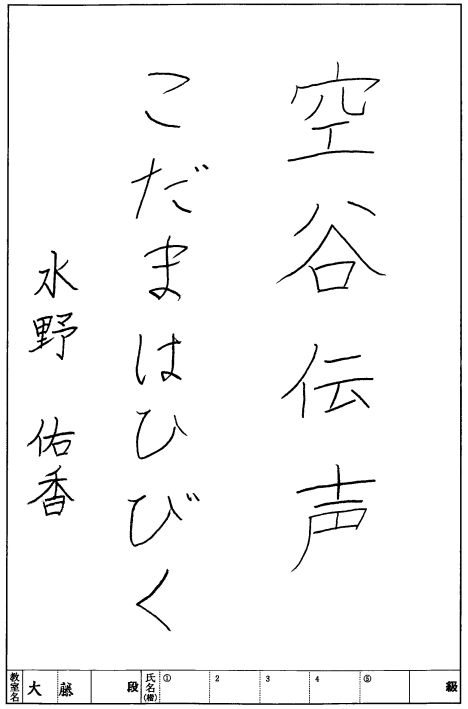 空谷伝声
こだまはひびく
水野 佑香
教室名 大藤 段 氏名(楷) ① 2 3 4 ⑤ 級